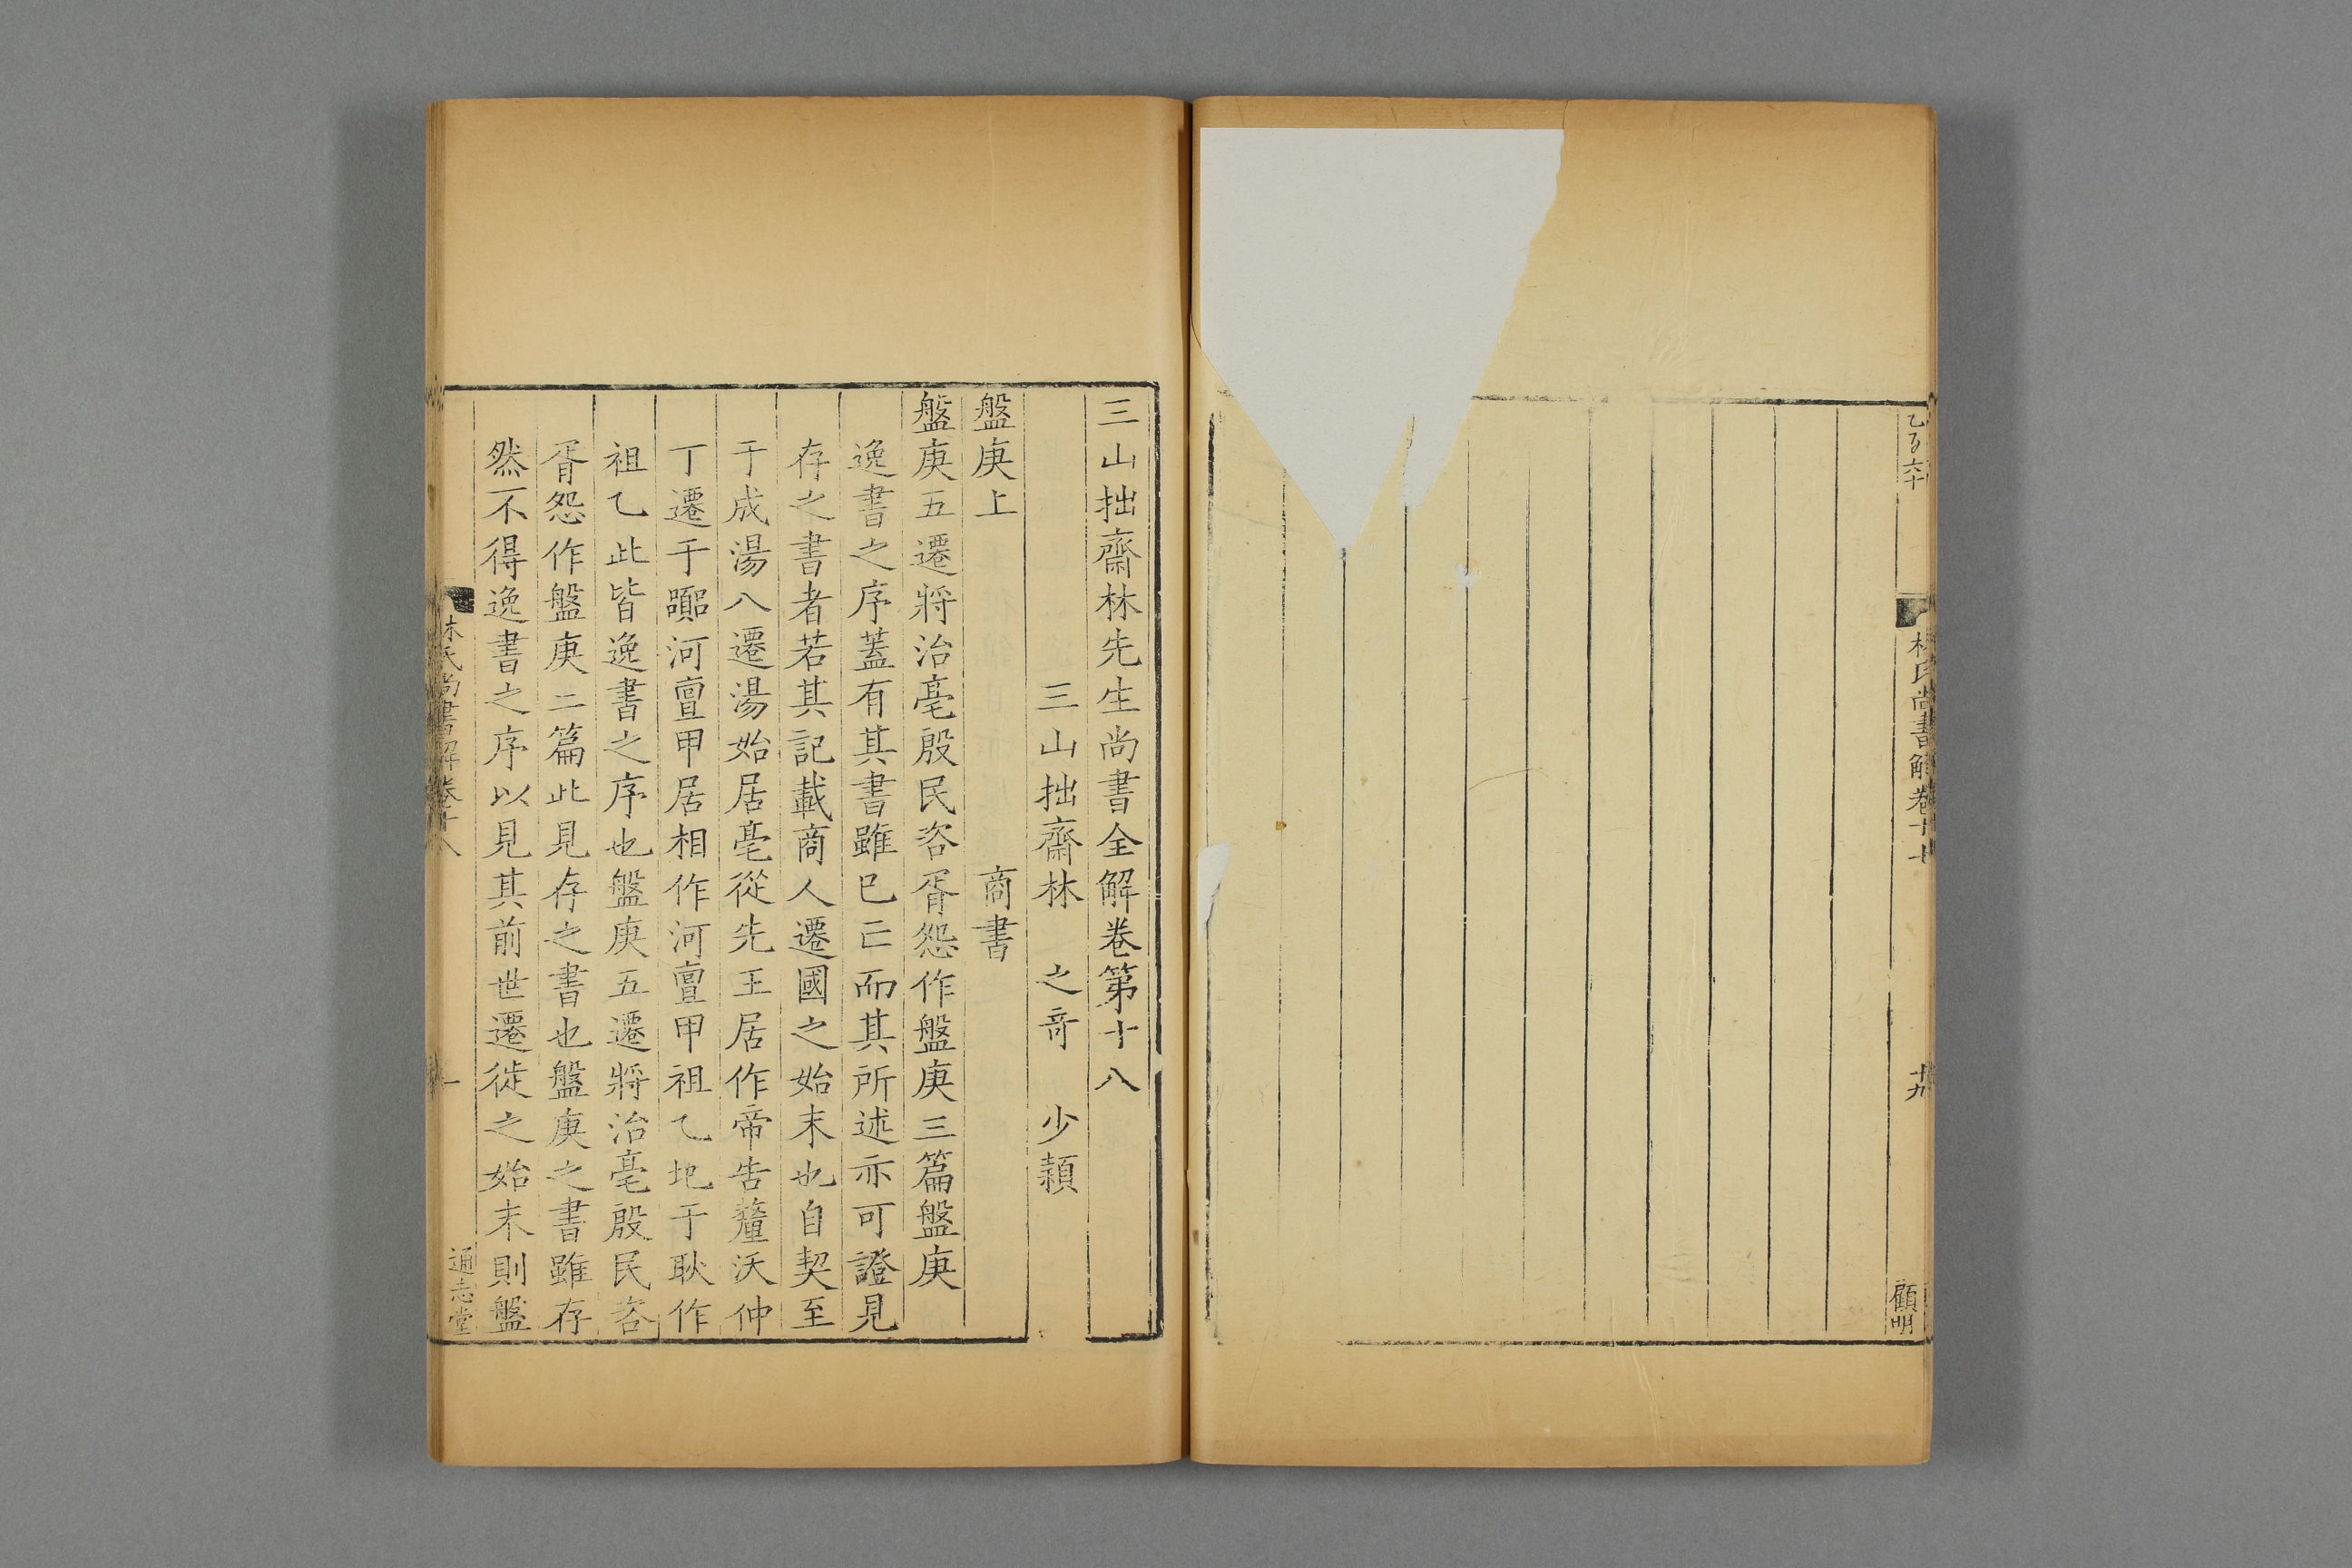 林氏尚書解卷十七
十九
顧明
三山拙齋林先生尚書全解卷第十八
三山拙齋林　之奇　少穎
盤庚上　商書
盤庚五遷將治亳殷民咨胥怨作盤庚三篇盤庚
逸書之序蓋有其書雖已亡而其所述亦可證見
存之書者若其記載商人遷國之始末也自契至
于成湯八遷湯始居亳從先王居作帝告釐沃仲
丁遷于囂河亶甲居相作河亶甲祖乙圯于耿作
祖乙此皆逸書之序也盤庚五遷將治亳殷民咨
胥怨作盤庚三篇此見存之書也盤庚之書雖存
然不得逸書之序以見其前世遷徙之始末則盤
林氏尚書解卷十八
一
通志堂